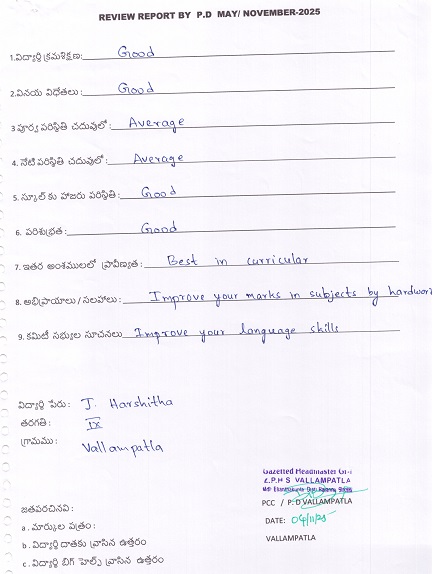 REVIEW REPORT BY P.D MAY/ NOVEMBER-2025
1.విద్యార్థి క్రమశిక్షణ: Good
2.వినయ విధేతలు: Good
3 పూర్వ పరిస్థితి చదువులో: Average
4. నేటి పరిస్థితి చదువులో: Average
5. స్కూల్ కు హాజరు పరిస్థితి: Good
6. పరిశుభ్రత: Good
7. ఇతర అంశములలో ప్రావీణ్యత: Best in curricular
8. అభిప్రాయాలు / సలహాలు: Improve your marks in subjects by hardwor
9. కమిటీ సభ్యుల సూచనలు Improve your language skills
విద్యార్థి పేరు: J. Harshitha
తరగతి: IX
గ్రామము: Vallampatla
Gazetted Headmaster Gr-I
Z.P.H S VALLAMPATLA
PCC / P.D VALLAMPATLA
DATE: 04/11/25
VALLAMPATLA
జతపరచినవి:
a. మార్కుల పత్రం:
b. విద్యార్థి దాతకు వ్రాసిన ఉత్తరం
c. విద్యార్థి బిగ్ హెల్ప్ వ్రాసిన ఉత్తరం